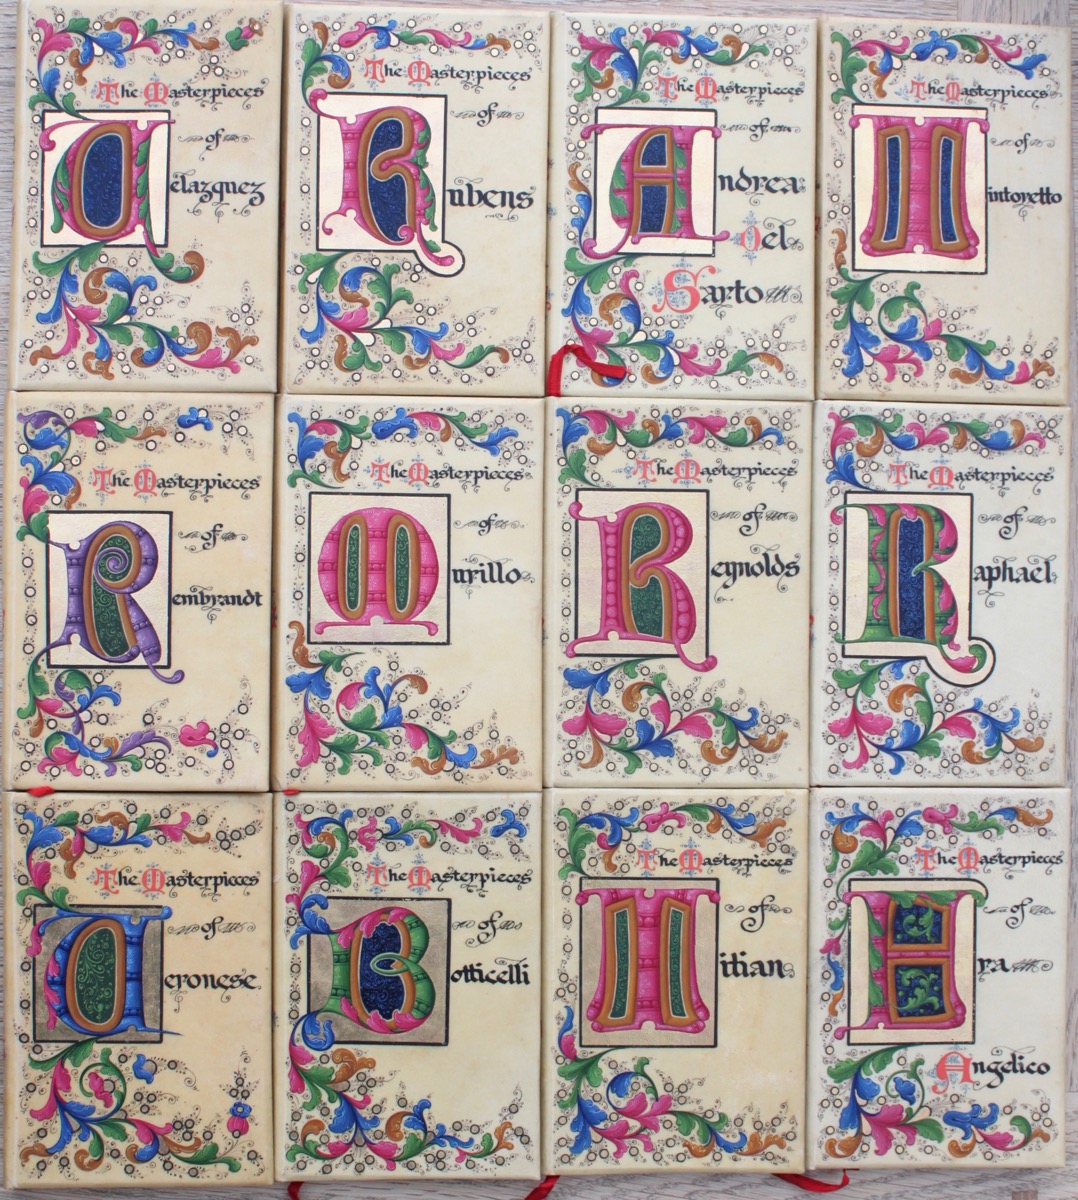 The Masterpieces
of
Velazquez
The Masterpieces
of
Rubens
The Masterpieces
of
Andrea
Del
Sarto
The Masterpieces
of
Tintoretto
The Masterpieces
of
Rembrandt
The Masterpieces
of
Murillo
The Masterpieces
of
Reynolds
The Masterpieces
of
Raphael
The Masterpieces
of
Veronese
The Masterpieces
of
Botticelli
The Masterpieces
of
Titian
The Masterpieces
of
Fra
Angelico